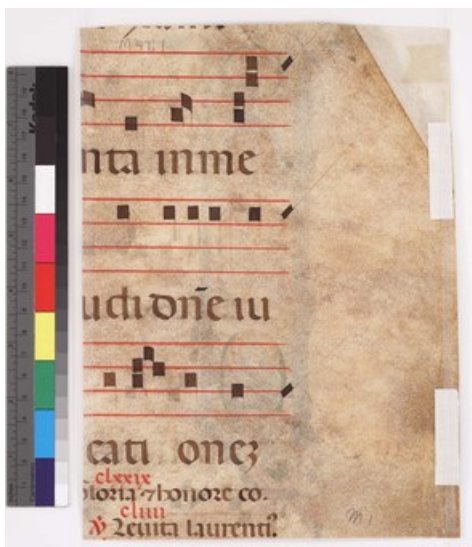 nta in me
udi dn̄e iu
cati onez
clxxix
gloria ⁊ honore co.
cliiii
℣ Leuita laurenti⁹.
M 1